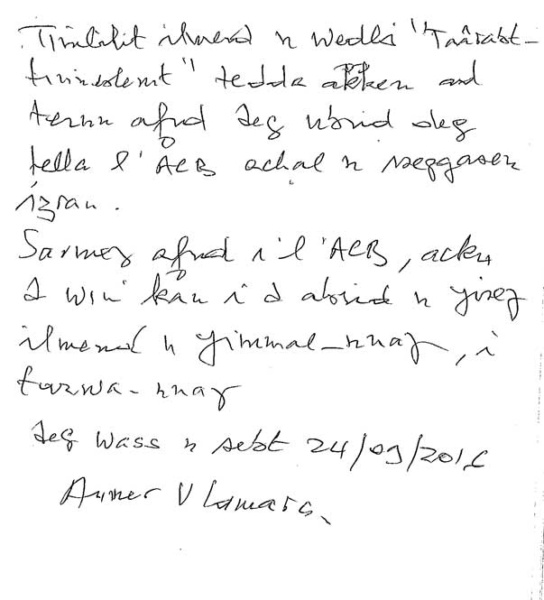 Timlilit ilmend n wedlis "Taârabt-
tinneslemt" tedda akken ad
ternu afud deg ubrid deg
tella l'ACB achal n iseggasen
izran.
Sarmeɣ afud i l'ACB, acku
d win kan i d abrid n yiseɣ
ilmend n yimmal-nnaɣ, i
tarwa-nnaɣ
deg wass n sebt 24/09/2016
Aumer U Lamara.